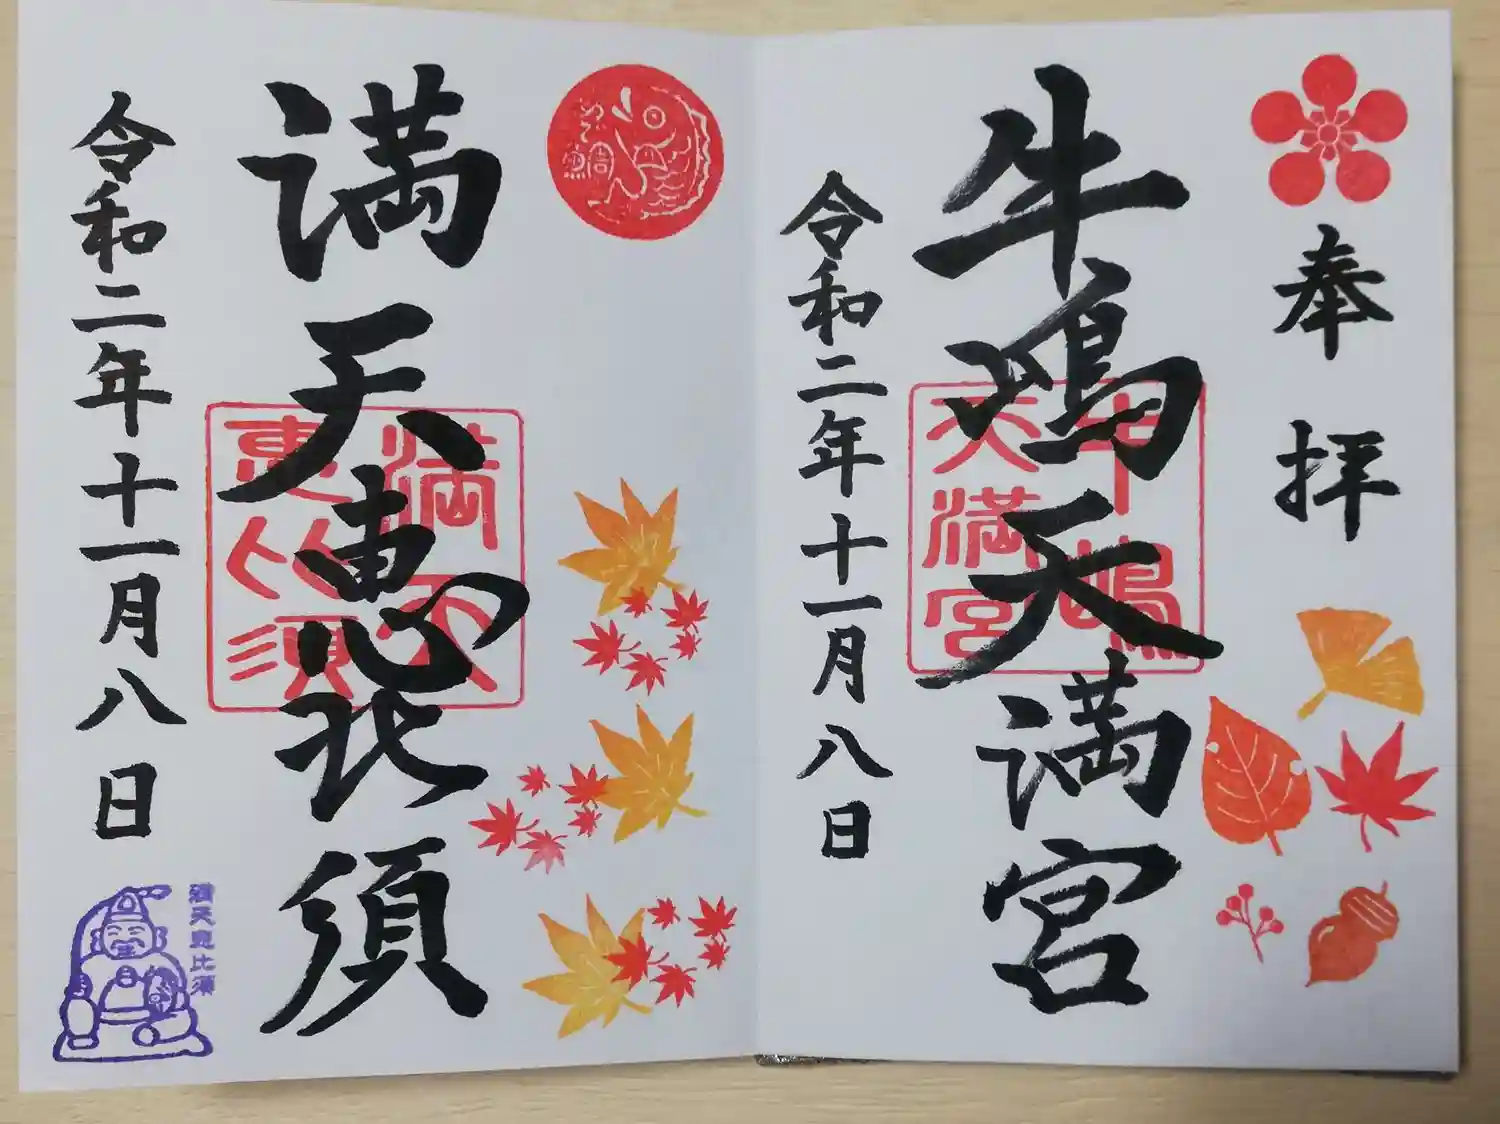 奉拝
牛嶋天満宮
牛嶋
天満宮
令和二年十一月八日
めで鯛
満天恵比須
満天
恵比須
令和二年十一月八日
満天恵比須